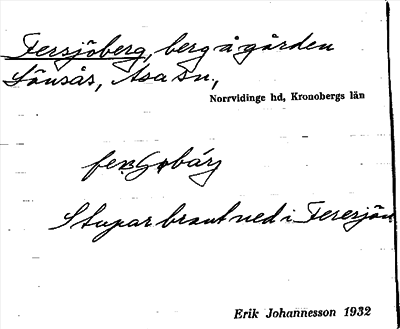 Fersjöberg, berg å gården
Lönsås, Asa sn.,
Norrvidinge hd, Kronobergs län
Stupar brant ned i Feresjön
Erik Johannesson 1932